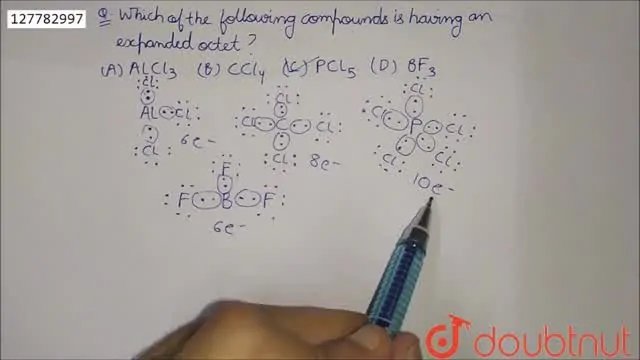 127782997
Q. Which of the following compounds is having an
expanded octet?
(A) AlCl3 (B) CCl4 (C) PCl5 (D) BF3
Cl Cl Cl
Al Cl Cl C Cl Cl P Cl
Cl 6e- Cl 8e- Cl Cl
F 10e-
F B F
6e-
doubtnut